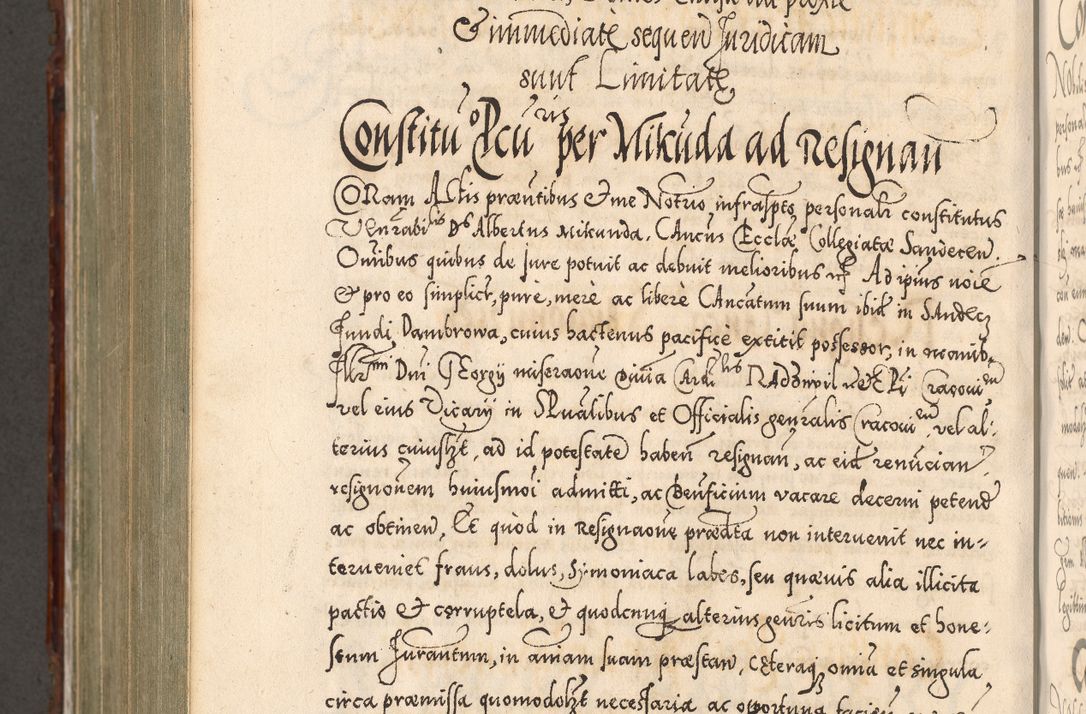 & immediate sequen Juridicam
sunt Limitatę
Constitu Pcu ris per Mikuda ad Resignan
CORam Actis præntibus & me Notrio infrascpto personalr constitutus
Venrabilis Ds Albertus Mikunda, CAncus Ecclæ Collegiatæ Sandecen.
Omibus quibus de Jure potuit ac debuit melioribus Ad ipsius noie
& pro eo simplicr, purè, merè ac liberè CAncatum suum ibid in SAndecz
fundi Dambrowa, cuius hactenus pacificè extitit possessor, in manib
Illrmi Dni GEorgij miseraone divia Cardilis RAdziwil Epi Cracovien
vel eius Vicarij in SPualibus et Officialis genralis Cracovien, vel al-
terius cuiuslzt, ad id potestatē haben resignan, ac eid renuncian
resignonem huiusmoi admitti, ac Benficium vacare decerni petend
ac obtinen, Et quòd in Resignaone prædta non intervenit nec in-
terveniet fraus, dolus, Symoniaca labes, seu quævis alia illicita
pactio & corruptela, & quodcunq alterius genris licitum et hone-
stum Jurantum, in aniam suam præstan, Cæteraq omia et singula
circa præmissa quomodolzt necessaria ac opportuna